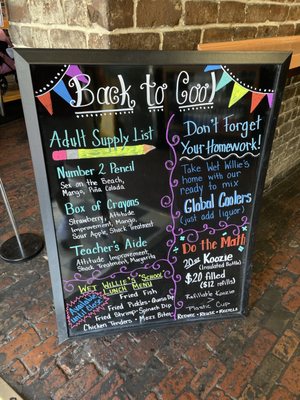 Back to Cool
Adult Supply List
Number 2 Pencil
Sex on the Beach,
Mango, Piña Colada
Box of Crayons
Strawberry, Attitude
Improvement, Mango,
Sour Apple, Shock Treatment
Teacher's Aide
Attitude Improvement,
Shock Treatment, Margarita
Wet Willie's "School"
Lunch Menu
Available
until
Fried Fish
Fried Pickles
Fried Shrimp Spinach Dip
Chicken Tenders Mezz Bites
Don't Forget
Your Homework!
Take Wet Willie's
home with our
ready to mix
Global Coolers
(just add liquor)
Do the Math
20oz Koozie
(Insulated Bottle)
$20 filled
($12 refills)
Refillable Koozie
Plastic Cup
Reduce - Reuse - Recycle